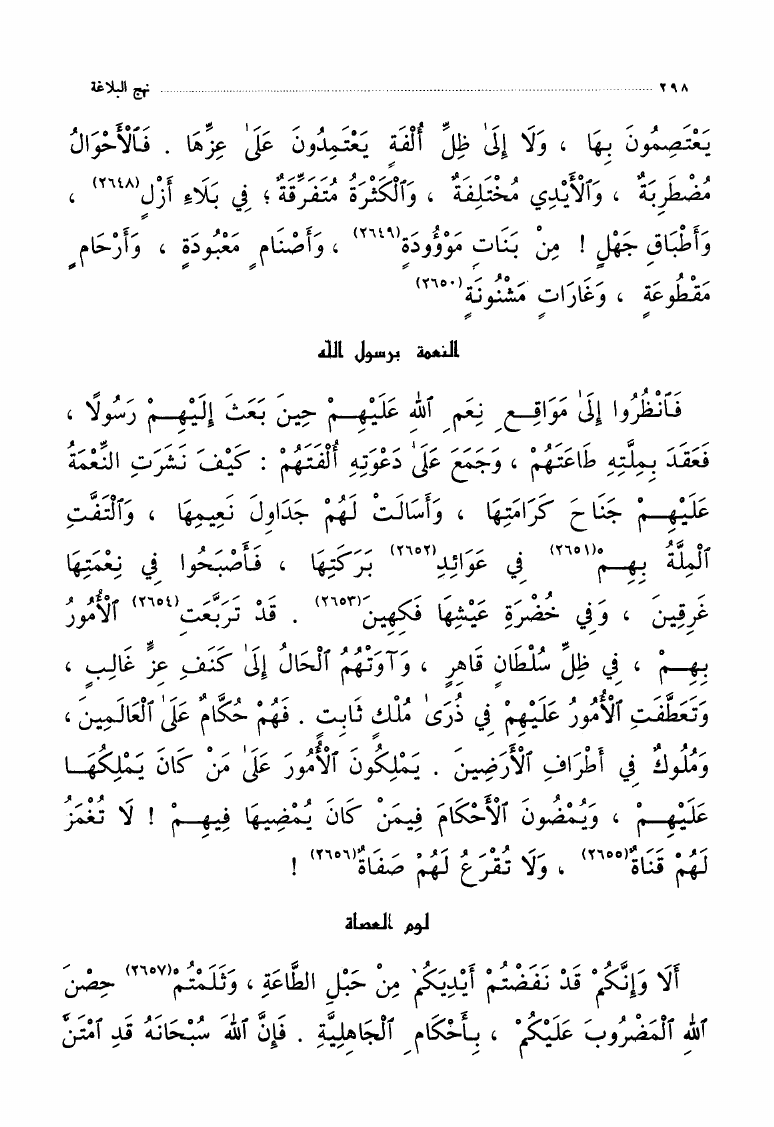 ٢٩٨ ........ نهج البلاغة
يَعْتَصِمُونَ بِهَا ، وَلَا إِلَىٰ ظِلِّ أُلْفَةٍ يَعْتَمِدُونَ عَلَىٰ عِزِّهَا . فَٱلْأَحْوَالُ
مُضْطَرِبَةٌ ، وَٱلْأَيْدِي مُخْتَلِفَةٌ ، وَٱلْكَثْرَةُ مُتَفَرِّقَةٌ ؛ فِي بَلَاءِ أَزْلٍ(٢٦٤٨) ،
وَأَطْبَاقِ جَهْلٍ ! مِنْ بَنَاتٍ مَوْؤُودَةٍ(٢٦٤٩) ، وَأَصْنَامٍ مَعْبُودَةٍ ، وَأَرْحَامٍ
مَقْطُوعَةٍ ، وَغَارَاتٍ مَشْنُونَةٍ(٢٦٥٠)
النعمة برسول الله
فَٱنْظُرُوا إِلَىٰ مَوَاقِعِ نِعَمِ ٱللهِ عَلَيْهِمْ حِينَ بَعَثَ إِلَيْهِمْ رَسُولًا ،
فَعَقَدَ بِمِلَّتِهِ طَاعَتَهُمْ ، وَجَمَعَ عَلَىٰ دَعْوَتِهِ أُلْفَتَهُمْ : كَيْفَ نَشَرَتِ النِّعْمَةُ
عَلَيْهِمْ جَنَاحَ كَرَامَتِهَا ، وَأَسَالَتْ لَهُمْ جَدَاوِلَ نَعِيمِهَا ، وَٱلْتَفَّتِ
ٱلْمِلَّةُ بِهِمْ(٢٦٥١) فِي عَوَائِدِ(٢٦٥٢) بَرَكَتِهَا ، فَأَصْبَحُوا فِي نِعْمَتِهَا
غَرِقِينَ ، وَفِي خُضْرَةِ عَيْشِهَا فَكِهِينَ(٢٦٥٣) . قَدْ تَرَبَّعَتِ(٢٦٥٤) ٱلْأُمُورُ
بِهِمْ ، فِي ظِلِّ سُلْطَانٍ قَاهِرٍ ، وَآوَتْهُمُ ٱلْحَالُ إِلَىٰ كَنَفِ عِزٍّ غَالِبٍ ،
وَتَعَطَّفَتِ ٱلْأُمُورُ عَلَيْهِمْ فِي ذُرَىٰ مُلْكٍ ثَابِتٍ . فَهُمْ حُكَّامٌ عَلَىٰ ٱلْعَالَمِينَ ،
وَمُلُوكٌ فِي أَطْرَافِ ٱلْأَرَضِينَ . يَمْلِكُونَ ٱلْأُمُورَ عَلَىٰ مَنْ كَانَ يَمْلِكُهَا
عَلَيْهِمْ ، وَيُمْضُونَ ٱلْأَحْكَامَ فِيمَنْ كَانَ يُمْضِيهَا فِيهِمْ ! لَا تُغْمَزُ
لَهُمْ قَنَاةٌ(٢٦٥٥) ، وَلَا تُقْرَعُ لَهُمْ صَفَاةٌ(٢٦٥٦) !
لوم العصاة
أَلَا وَإِنَّكُمْ قَدْ نَفَضْتُمْ أَيْدِيَكُمْ مِنْ حَبْلِ الطَّاعَةِ ، وَثَلَمْتُمْ(٢٦٥٧) حِصْنَ
ٱللهِ ٱلْمَضْرُوبَ عَلَيْكُمْ ، بِأَحْكَامِ ٱلْجَاهِلِيَّةِ . فَإِنَّ ٱللهَ سُبْحَانَهُ قَدِ ٱمْتَنَّ